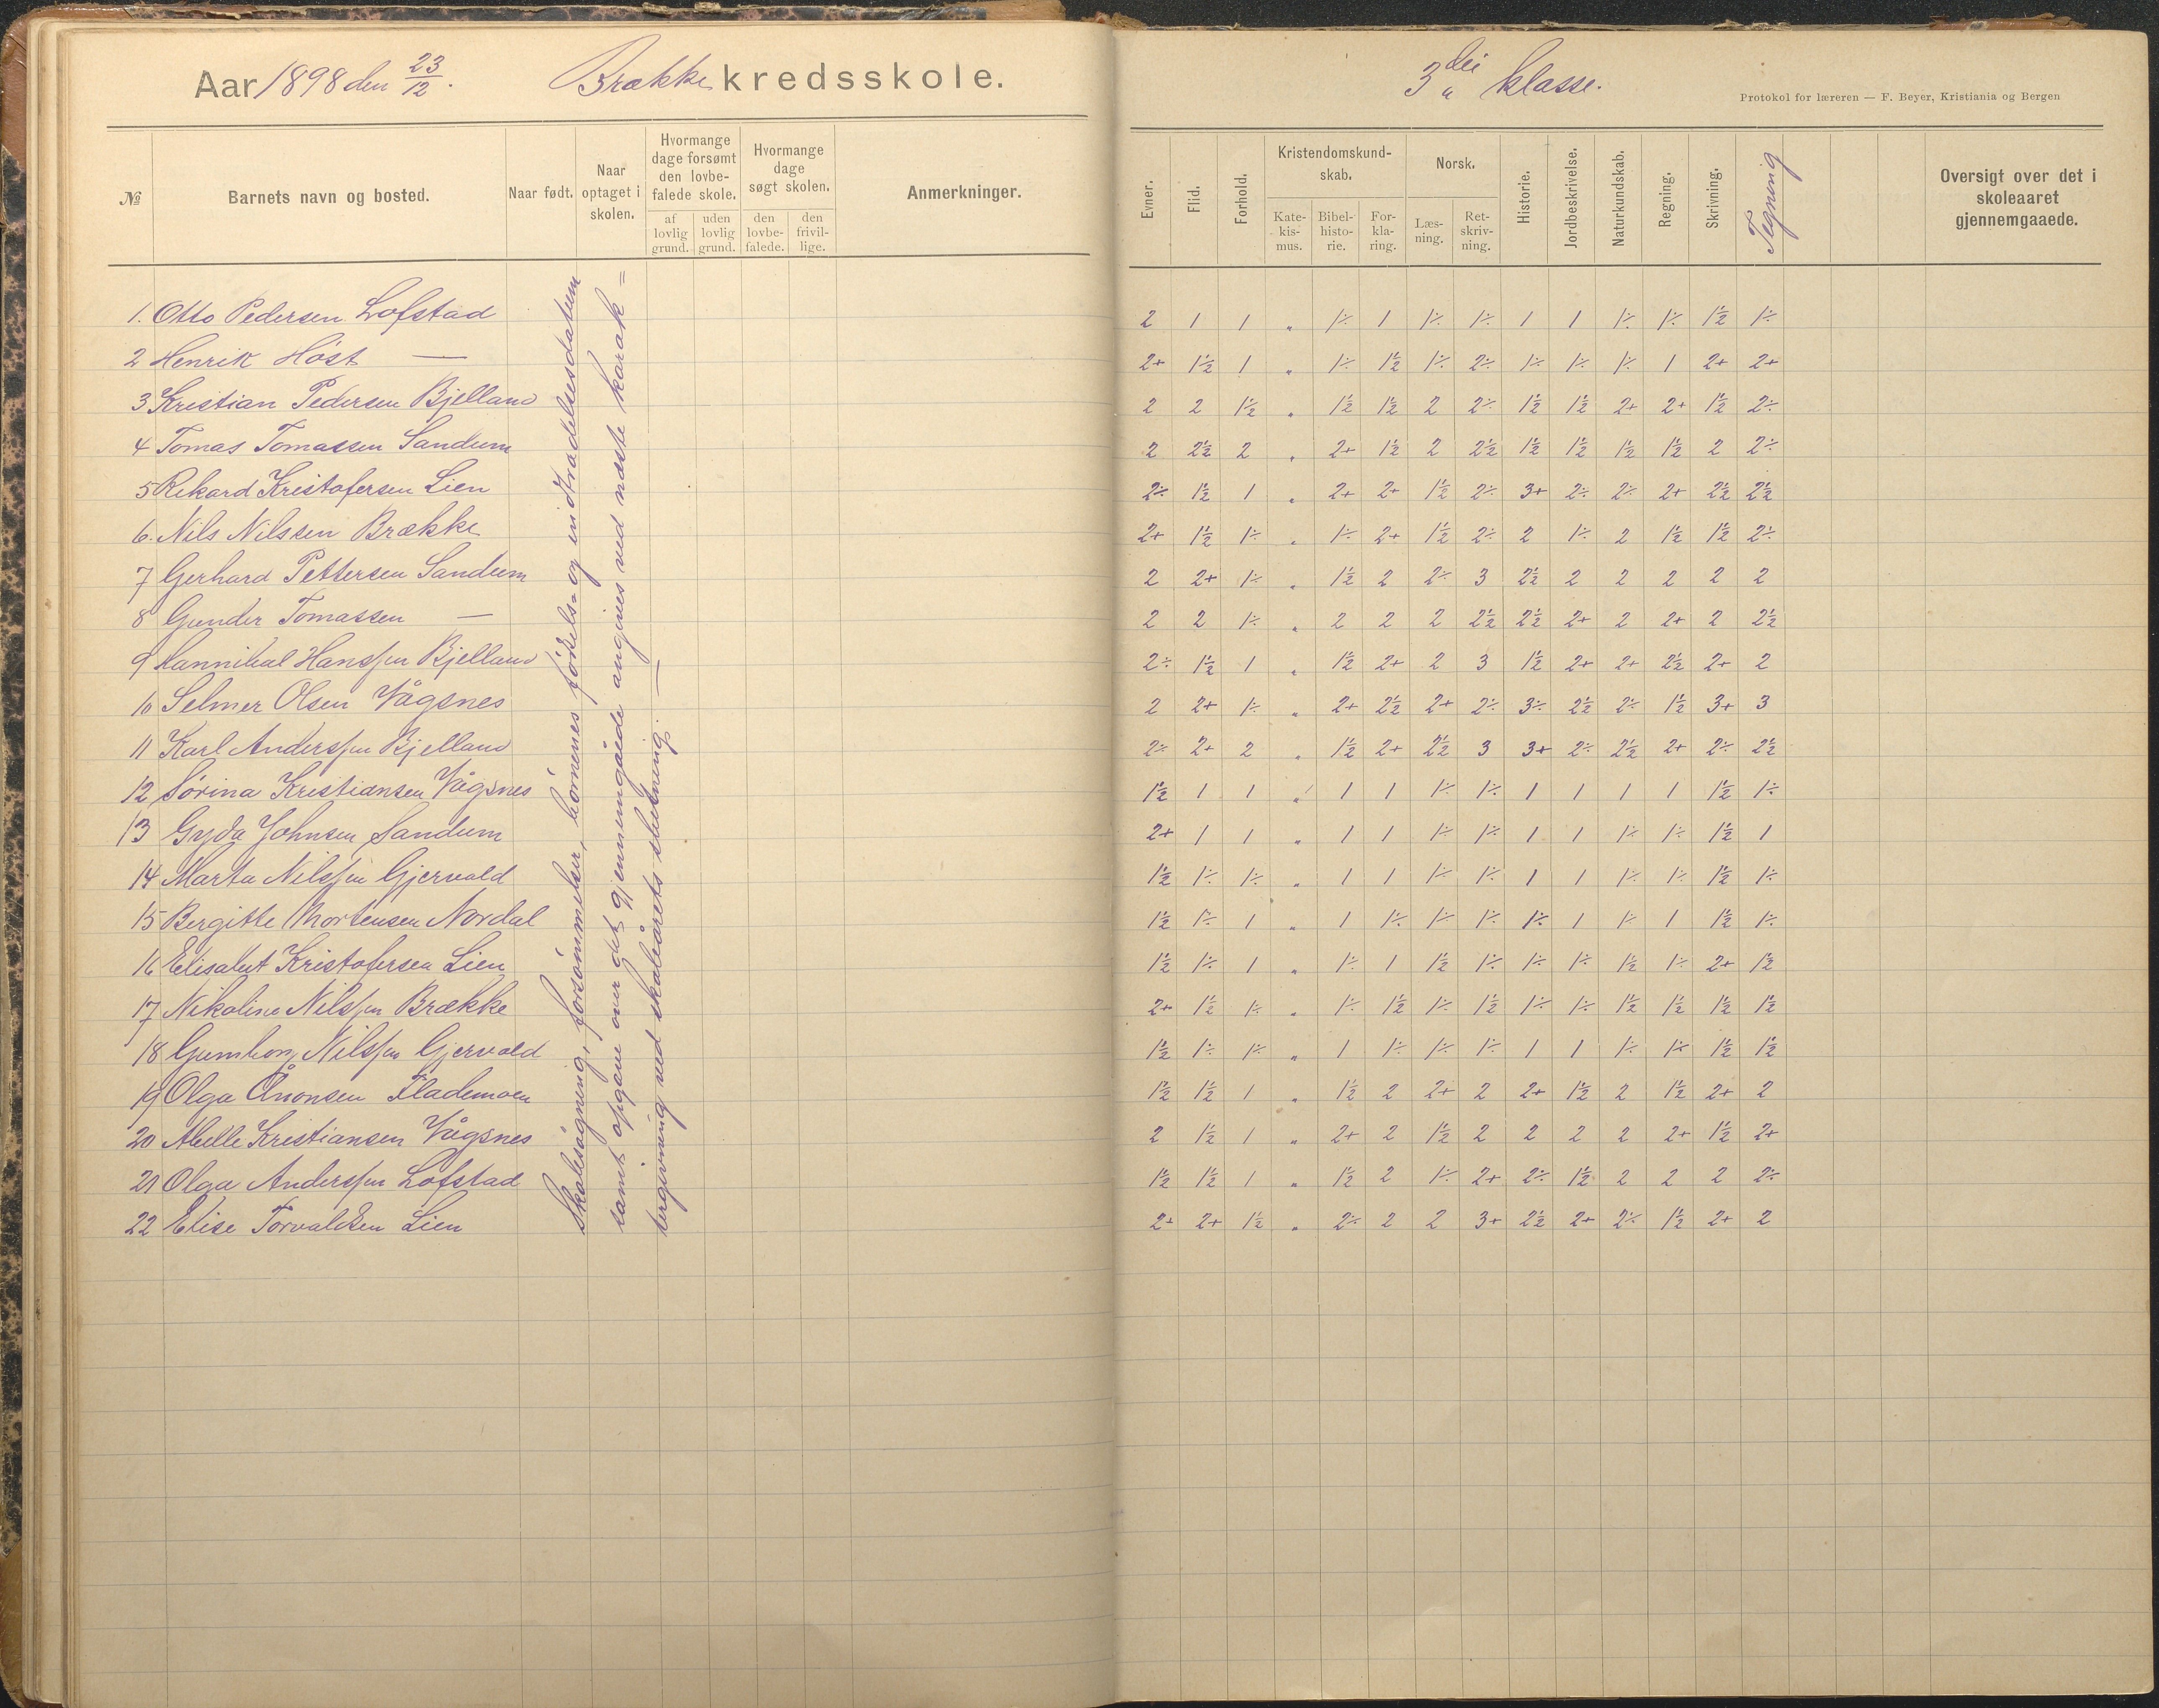 Aar 1898 den 23/12. Brække kredsskole.
№ Barnets navn og bosted. Naar født. Naar optaget i skolen. Hvormange dage forsømt den lovbefalede skole. af lovlig grund. uden lovlig grund. Hvormange dage søgt skolen. den lovbefalede. den frivillige. Anmerkninger.
1. Otto Pedersen Lofstad
2 Henrik Höst —
3 Kristian Pedersen Bjelland
4 Tomas Tomassen Sandum
5 Rikard Kristofersen Lien
6. Nils Nilssen Brække
7 Gerhard Pettersen Sandum
8 Gunder Tomassen —
9 Hannibal Hanssen Bjelland
10 Selmer Olsen Vågsnes
11 Karl Anderssen Bjelland
12 Sörina Kristiansen Vågsnes
13 Gyda Johnsen Sandum
14 Marta Nilssen Gjervold
15 Bergitte Mortensen Nordal
16 Elisabet Kristofersen Lien
17 Nikoline Nilssen Brække
18 Gumborg Nilssen Gjervold
19 Olga Ånonsen Flademoen
20 Abelle Kristiansen Vågsnes
21 Olga Anderssen Lofstad
22 Elise Torvaldsen Lien
Skolesögning, forsömmelser, börnenes födsels- og indtrædelsesdatum
samt opgave over det gjennemgåede angives ved næste karak=
tergivning ved skoleårets slutning. —
3die klasse.
"
Protokol for læreren — F. Beyer, Kristiania og Bergen
Evner. Flid. Forhold. Kristendomskundskab. Katekismus. Bibelhistorie. Forklaring. Norsk. Læsning. Retskrivning. Historie. Jordbeskrivelse. Naturkundskab. Regning. Skrivning. Tegning Oversigt over det i skoleaaret gjennemgaaede.
2 1 1 " 1÷ 1 1÷ 1÷ 1 1 1÷ 1÷ 1½ 1÷
2+ 1½ 1 " 1÷ 1½ 1÷ 2÷ 1÷ 1÷ 1÷ 1 2+ 2+
2 2 1½ " 1½ 1½ 2 2÷ 1½ 1½ 2+ 2+ 1½ 2÷
2 2½ 2 " 2+ 1½ 2 2½ 1½ 1½ 1½ 1½ 2 2÷
2÷ 1½ 1 " 2+ 2+ 1½ 2÷ 3+ 2÷ 2÷ 2+ 2½ 2½
2+ 1½ 1÷ " 1÷ 2+ 1½ 2÷ 2 1÷ 2 1½ 1½ 2÷
2 2+ 1÷ " 1½ 2 2÷ 3 2½ 2 2 2 2 2
2 2 1÷ " 2 2 2 2½ 2½ 2+ 2 2+ 2 2½
2÷ 1½ 1 " 1½ 2+ 2 3 1½ 2+ 2+ 2½ 2+ 2
2 2+ 1÷ " 2+ 2½ 2+ 2÷ 3÷ 2½ 2÷ 1½ 3+ 3
2÷ 2+ 2 " 1½ 2+ 2½ 3 3+ 2÷ 2½ 2+ 2÷ 2½
1½ 1 1 " 1 1 1÷ 1÷ 1 1 1 1 1½ 1÷
2+ 1 1 " 1 1 1÷ 1÷ 1 1 1÷ 1÷ 1½ 1
1½ 1÷ 1÷ " 1 1 1÷ 1÷ 1 1 1÷ 1÷ 1½ 1÷
1½ 1÷ 1 " 1 1÷ 1÷ 1÷ 1÷ 1 1÷ 1 1½ 1÷
1½ 1÷ 1 " 1÷ 1 1½ 1÷ 1÷ 1÷ 1½ 1÷ 2+ 1½
2+ 1½ 1÷ " 1÷ 1½ 1÷ 1½ 1÷ 1÷ 1½ 1½ 1½ 1½
1½ 1÷ 1÷ " 1 1÷ 1÷ 1÷ 1 1 1÷ 1÷ 1½ 1½
1½ 1½ 1 " 1½ 2 2+ 2 2+ 1½ 2 1½ 2+ 2
2 1½ 1 " 2+ 2 1½ 2 2 2 2 2+ 1½ 2+
1½ 1½ 1 " 1½ 2 1÷ 2+ 2÷ 1½ 2 2 2 2÷
2+ 2+ 1½ " 2÷ 2 2 3+ 2½ 2+ 2÷ 1½ 2+ 2